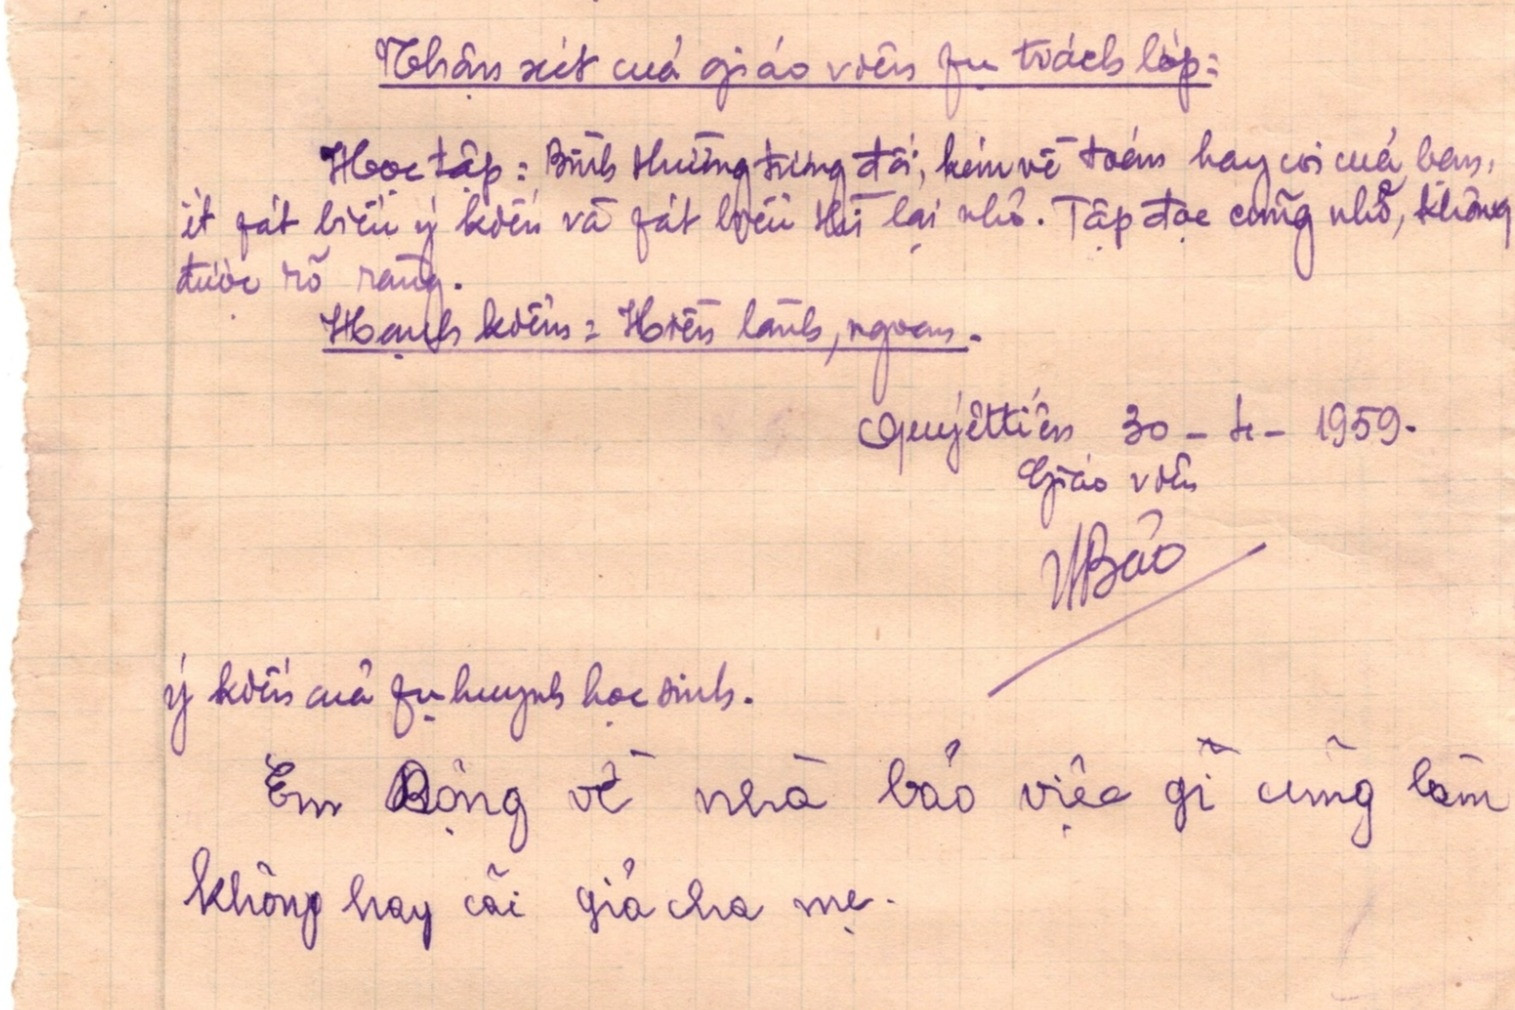 Nhận xét của giáo viên fụ trách lớp:
Học tập: Bình thường tương đối, kém về toán hay coi của bạn,
ít fát biểu ý kiến và fát biểu thì lại nhỏ. Tập đọc cũng nhỏ, không
được rõ ràng.
Hạnh kiểm: Hiền lành, ngoan.
Quyết tiến 30 - 4 - 1959.
Giáo viên
VBảo
Ý kiến của fụ huynh học sinh.
Em Động về nhà bảo việc gì cũng làm
không hay cãi giả cha mẹ.